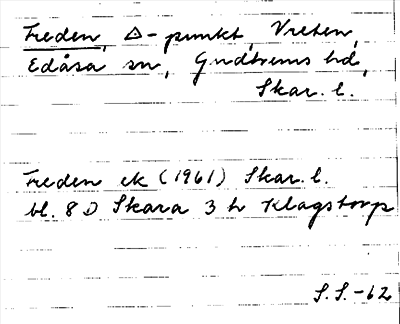 Freden, Δ-punkt, Vreten,
Edåsa sn, Gudhems hd,
Skar. l.
Freden ek (1961) Skar. l.
bl. 8 D Skara 3 h Klagstorp
S.S.-62